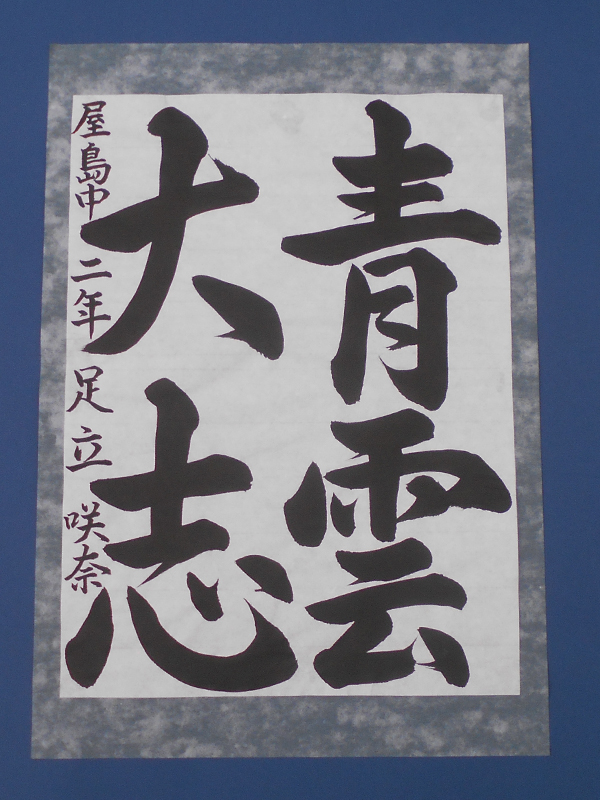 青雲
大志
屋島中 二年 足立 咲奈